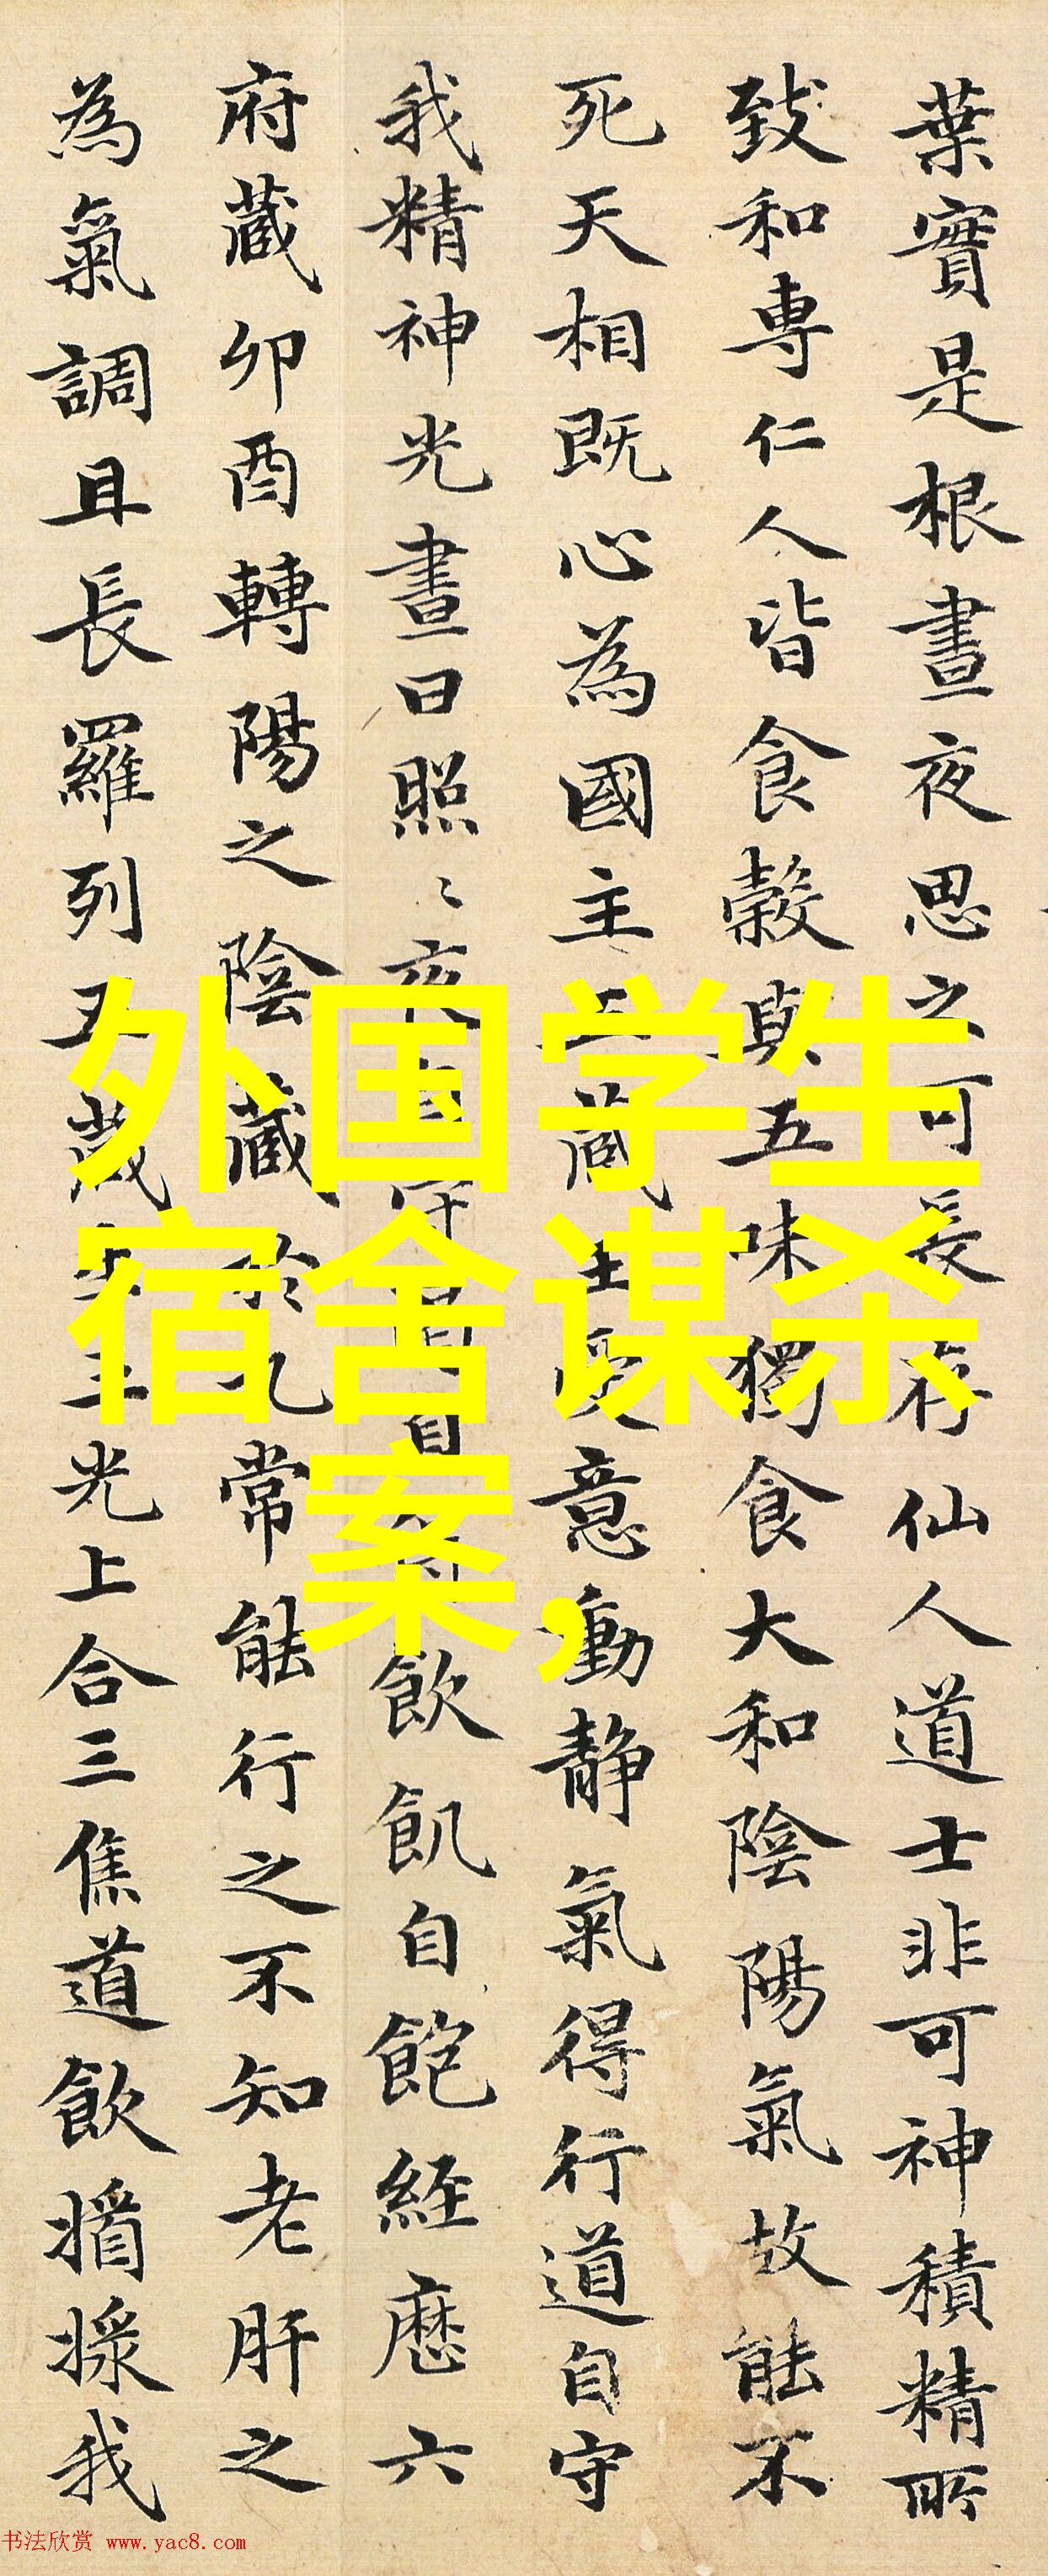 葉實是根晝夜思之可長存仙人道士非可神積精所
致和專仁人皆食穀與五味獨食大和陰陽氣故能不
死天相既心為國主五藏王受意動静氣得行道自守
我精神光晝日照〻夜自守渴自飲飢自飽經歷六
府藏卯酉轉陽之陰藏於九常能行之不知老肝之
為氣調且長羅列五藏生三光上合三焦道飲揗採我
外国学生
宿舍谋杀
案,
书法欣赏 www.yac8.com